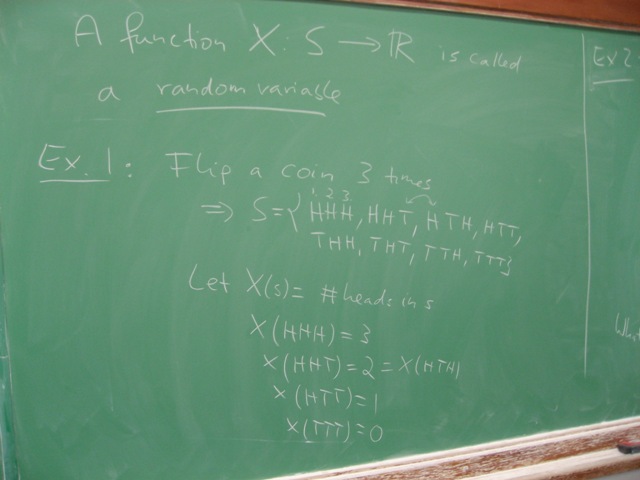 A function X: S → ℝ is called
a random variable
Ex. 1: Flip a coin 3 times
1 2 3
⇒ S={HHH, HHT, HTH, HTT,
THH, THT, TTH, TTT}
Let X(s)= # heads in s
X(HHH)=3
X(HHT)=2=X(HTH)
X(HTT)=1
X(TTT)=0
Ex 2: